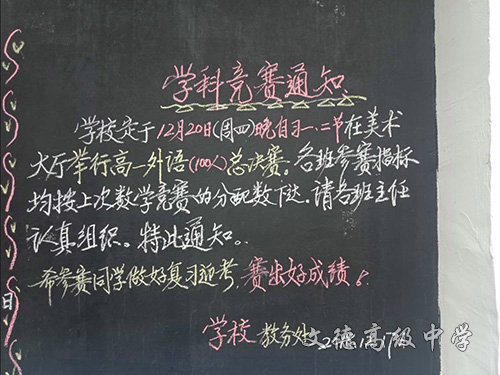 学科竞赛通知
学校定于12月20日(周四)晚自习一、二节在美术
大厅举行高一外语(100人)总决赛。各班参赛指标
均按上次数学竞赛的分配数下达。请各班主任
认真组织。特此通知。
希参赛同学做好复习迎考,赛出好成绩!
学校 教务处
文德高级中学
日